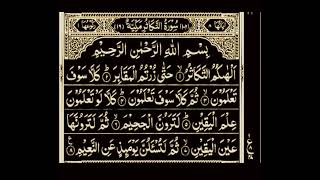 سُوۡرَةُ التَّكَاثُرِ مَكِّيَّةٌ
بِسۡمِ اللهِ الرَّحۡمٰنِ الرَّحِيۡمِ
اَلۡهٰىكُمُ التَّكَاثُرُ ۙ‏﴿۱﴾ حَتّٰى زُرۡتُمُ الۡمَقَابِرَ ؕ‏﴿۲﴾ كَلَّا سَوۡفَ
تَعۡلَمُوۡنَ ۙ‏﴿۳﴾ ثُمَّ كَلَّا سَوۡفَ تَعۡلَمُوۡنَ ؕ‏﴿۴﴾ كَلَّا لَوۡ تَعۡلَمُوۡنَ
عِلۡمَ الۡيَقِيۡنِ ؕ‏﴿۵﴾ لَتَرَوُنَّ الۡجَحِيۡمَ ۙ‏﴿۶﴾ ثُمَّ لَتَرَوُنَّهَا
عَيۡنَ الۡيَقِيۡنِ ۙ‏﴿۷﴾ ثُمَّ لَتُسۡـَٔـلُنَّ يَوۡمَٮِٕذٍ عَنِ النَّعِيۡمِ ‏﴿۸﴾